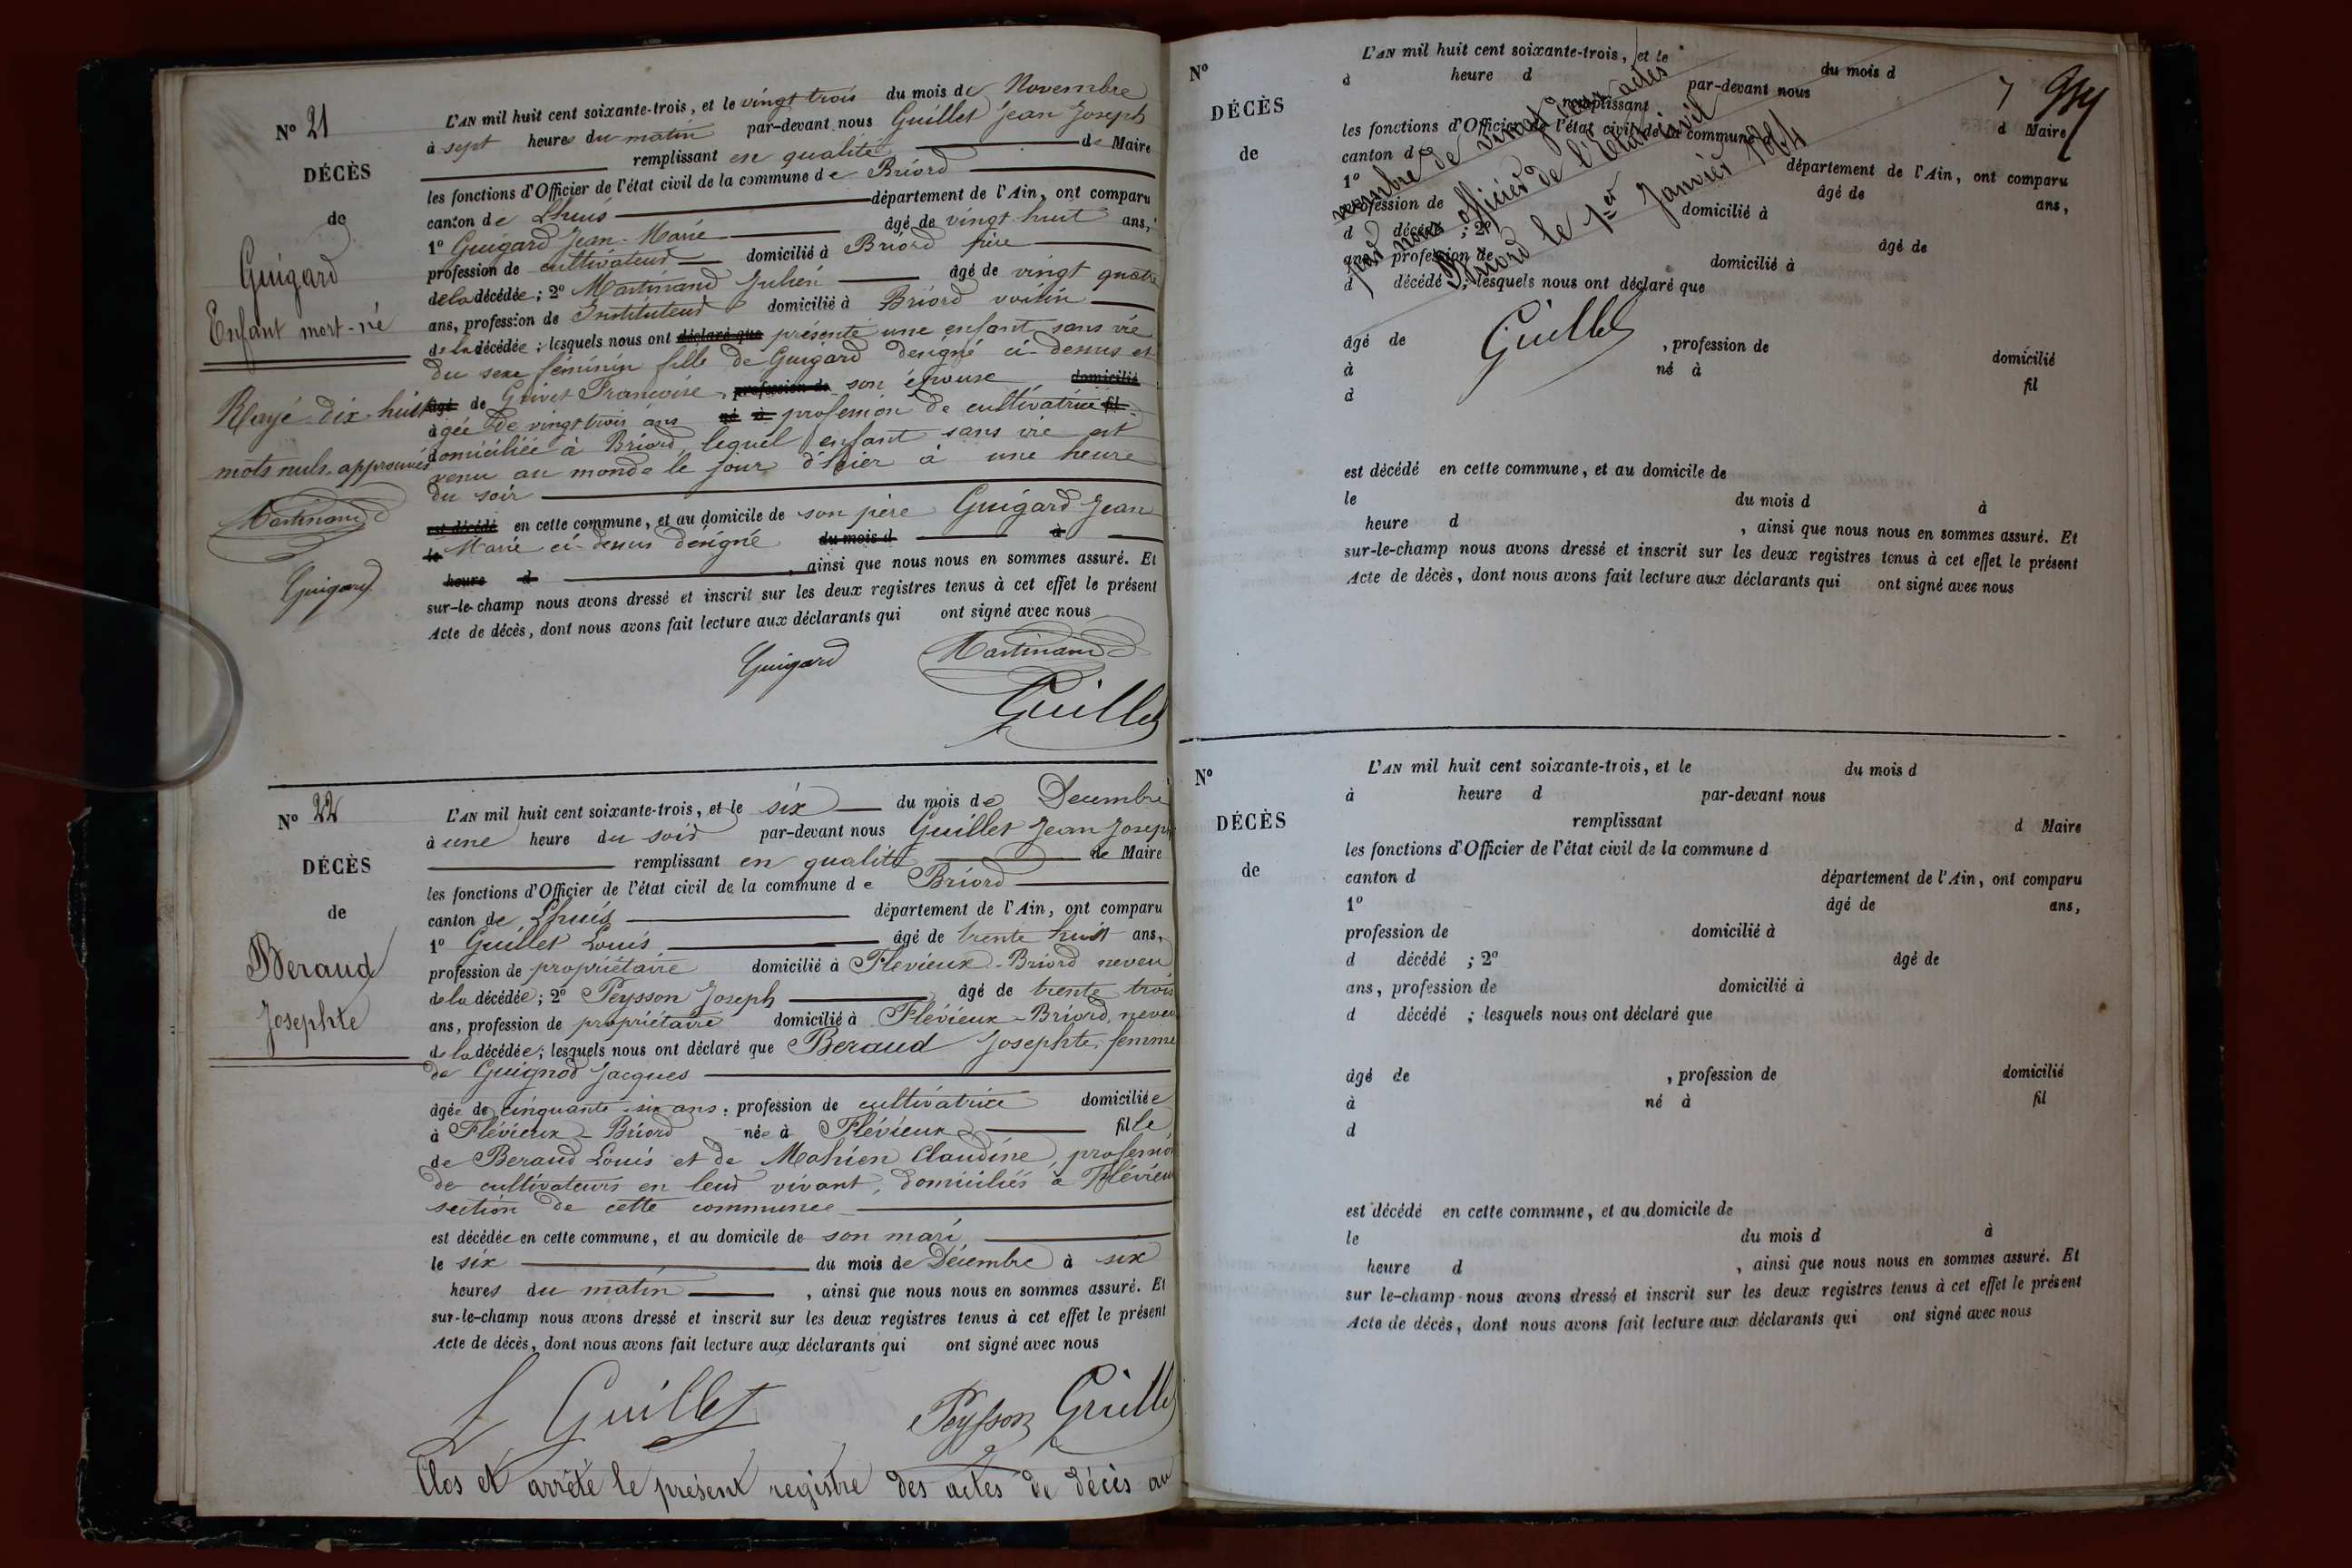 N° 21
DÉCÈS
de
Guigard
Enfant mort-né
Rayé dix-huit
mots nuls approuvés
Martinand
Guigard
L'AN mil huit cent soixante-trois, et le vingt trois du mois de Novembre
à sept heures du matin par-devant nous Guillet Jean Joseph
remplissant en qualité de Maire
les fonctions d'Officier de l'état civil de la commune de Briord
canton de Lhuis département de l'Ain, ont comparu
1° Guigard Jean-Marie âgé de vingt huit ans,
profession de cultivateur domicilié à Briord père
de la décédée; 2° Martinand Julien âgé de vingt quatre
ans, profession de Instituteur domicilié à Briord voisin
de la décédée; lesquels nous ont déclaré que présenté une enfant sans vie
du sexe féminin fille de Guigard désigné ci-dessus et
âgé de Grivet Francoise, profession de son épouse domicilié
agée de vingt trois ans né à profession de cultivatrice fil
domiciliée à Briord, lequel enfant sans vie est
venu au monde le jour d'hier à une heure
du soir
est décédé en cette commune, et au domicile de son père Guigard Jean
le Marie ci-dessus désigné du mois d à
heure d , ainsi que nous nous en sommes assuré. Et
sur-le-champ nous avons dressé et inscrit sur les deux registres tenus à cet effet le présent
Acte de décès, dont nous avons fait lecture aux déclarants qui ont signé avec nous
Guigard Martinand
Guillet
N° 22
DÉCÈS
de
Beraud
Josephte
L'AN mil huit cent soixante-trois, et le six du mois de Décembre
à une heure du soir par-devant nous Guillet Jean Joseph
remplissant en qualité de Maire
les fonctions d'Officier de l'état civil de la commune de Briord
canton de Lhuis département de l'Ain, ont comparu
1° Guillet Louis âgé de trente huit ans,
profession de propriétaire domicilié à Flevieux-Briord neveu
de la décédée; 2° Peysson Joseph âgé de trente trois
ans, profession de propriétaire domicilié à Flévieux-Briord, neveu
de la décédée; lesquels nous ont déclaré que Beraud Josephte, femme
de Guignod Jacques
âgée de cinquante-six ans, profession de cultivatrice domiciliée
à Flévieux-Briord née à Flévieux fille
de Beraud Louis et de Mathieu Claudine, profession
de cultivateurs en leur vivant, domiciliés à Flévieux
section de cette commune
est décédée en cette commune, et au domicile de son mari
le six du mois de Décembre à six
heures du matin , ainsi que nous nous en sommes assuré. Et
sur-le-champ nous avons dressé et inscrit sur les deux registres tenus à cet effet le présent
Acte de décès, dont nous avons fait lecture aux déclarants qui ont signé avec nous
L Guillet Peysson Guillet
Clos et arrêté le présent registre des actes de décès au
N°
DÉCÈS
de
L'AN mil huit cent soixante-trois, et le du mois d
à heure d par-devant nous
remplissant d Maire
les fonctions d'Officier de l'état civil de la commune d
canton d département de l'Ain, ont comparu
1° âgé de ans,
profession de domicilié à
d décédé ; 2° âgé de
ans, profession de domicilié à
d décédé ; lesquels nous ont déclaré que
nombre de vingt deux actes
par nous officier de l'Etat civil
Briord le 1er Janvier 1864
Guillet
âgé de , profession de domicilié
à né à fil
d
est décédé en cette commune, et au domicile de
le du mois d à
heure d , ainsi que nous nous en sommes assuré. Et
sur-le-champ nous avons dressé et inscrit sur les deux registres tenus à cet effet le présent
Acte de décès, dont nous avons fait lecture aux déclarants qui ont signé avec nous
N°
DÉCÈS
de
L'AN mil huit cent soixante-trois, et le du mois d
à heure d par-devant nous
remplissant d Maire
les fonctions d'Officier de l'état civil de la commune d
canton d département de l'Ain, ont comparu
1° âgé de ans,
profession de domicilié à
d décédé ; 2° âgé de
ans, profession de domicilié à
d décédé ; lesquels nous ont déclaré que
âgé de , profession de domicilié
à né à fil
d
est décédé en cette commune, et au domicile de
le du mois d à
heure d , ainsi que nous nous en sommes assuré. Et
sur le-champ nous avons dressé et inscrit sur les deux registres tenus à cet effet le présent
Acte de décès, dont nous avons fait lecture aux déclarants qui ont signé avec nous